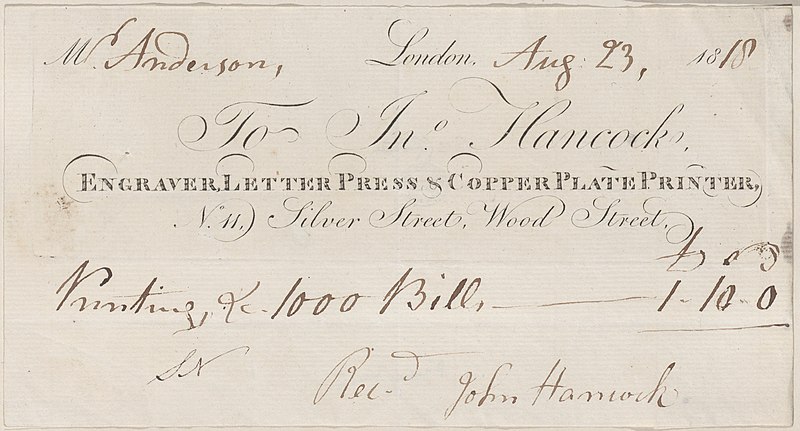 Mr. Anderson, London, Aug. 23, 1818
To Jno. Hancock,
ENGRAVER, LETTER PRESS & COPPER PLATE PRINTER,
No. 11, Silver Street, Wood Street.
Printing, &c. 1000 Bills 1 - 10 - 0
Recd. John Hancock